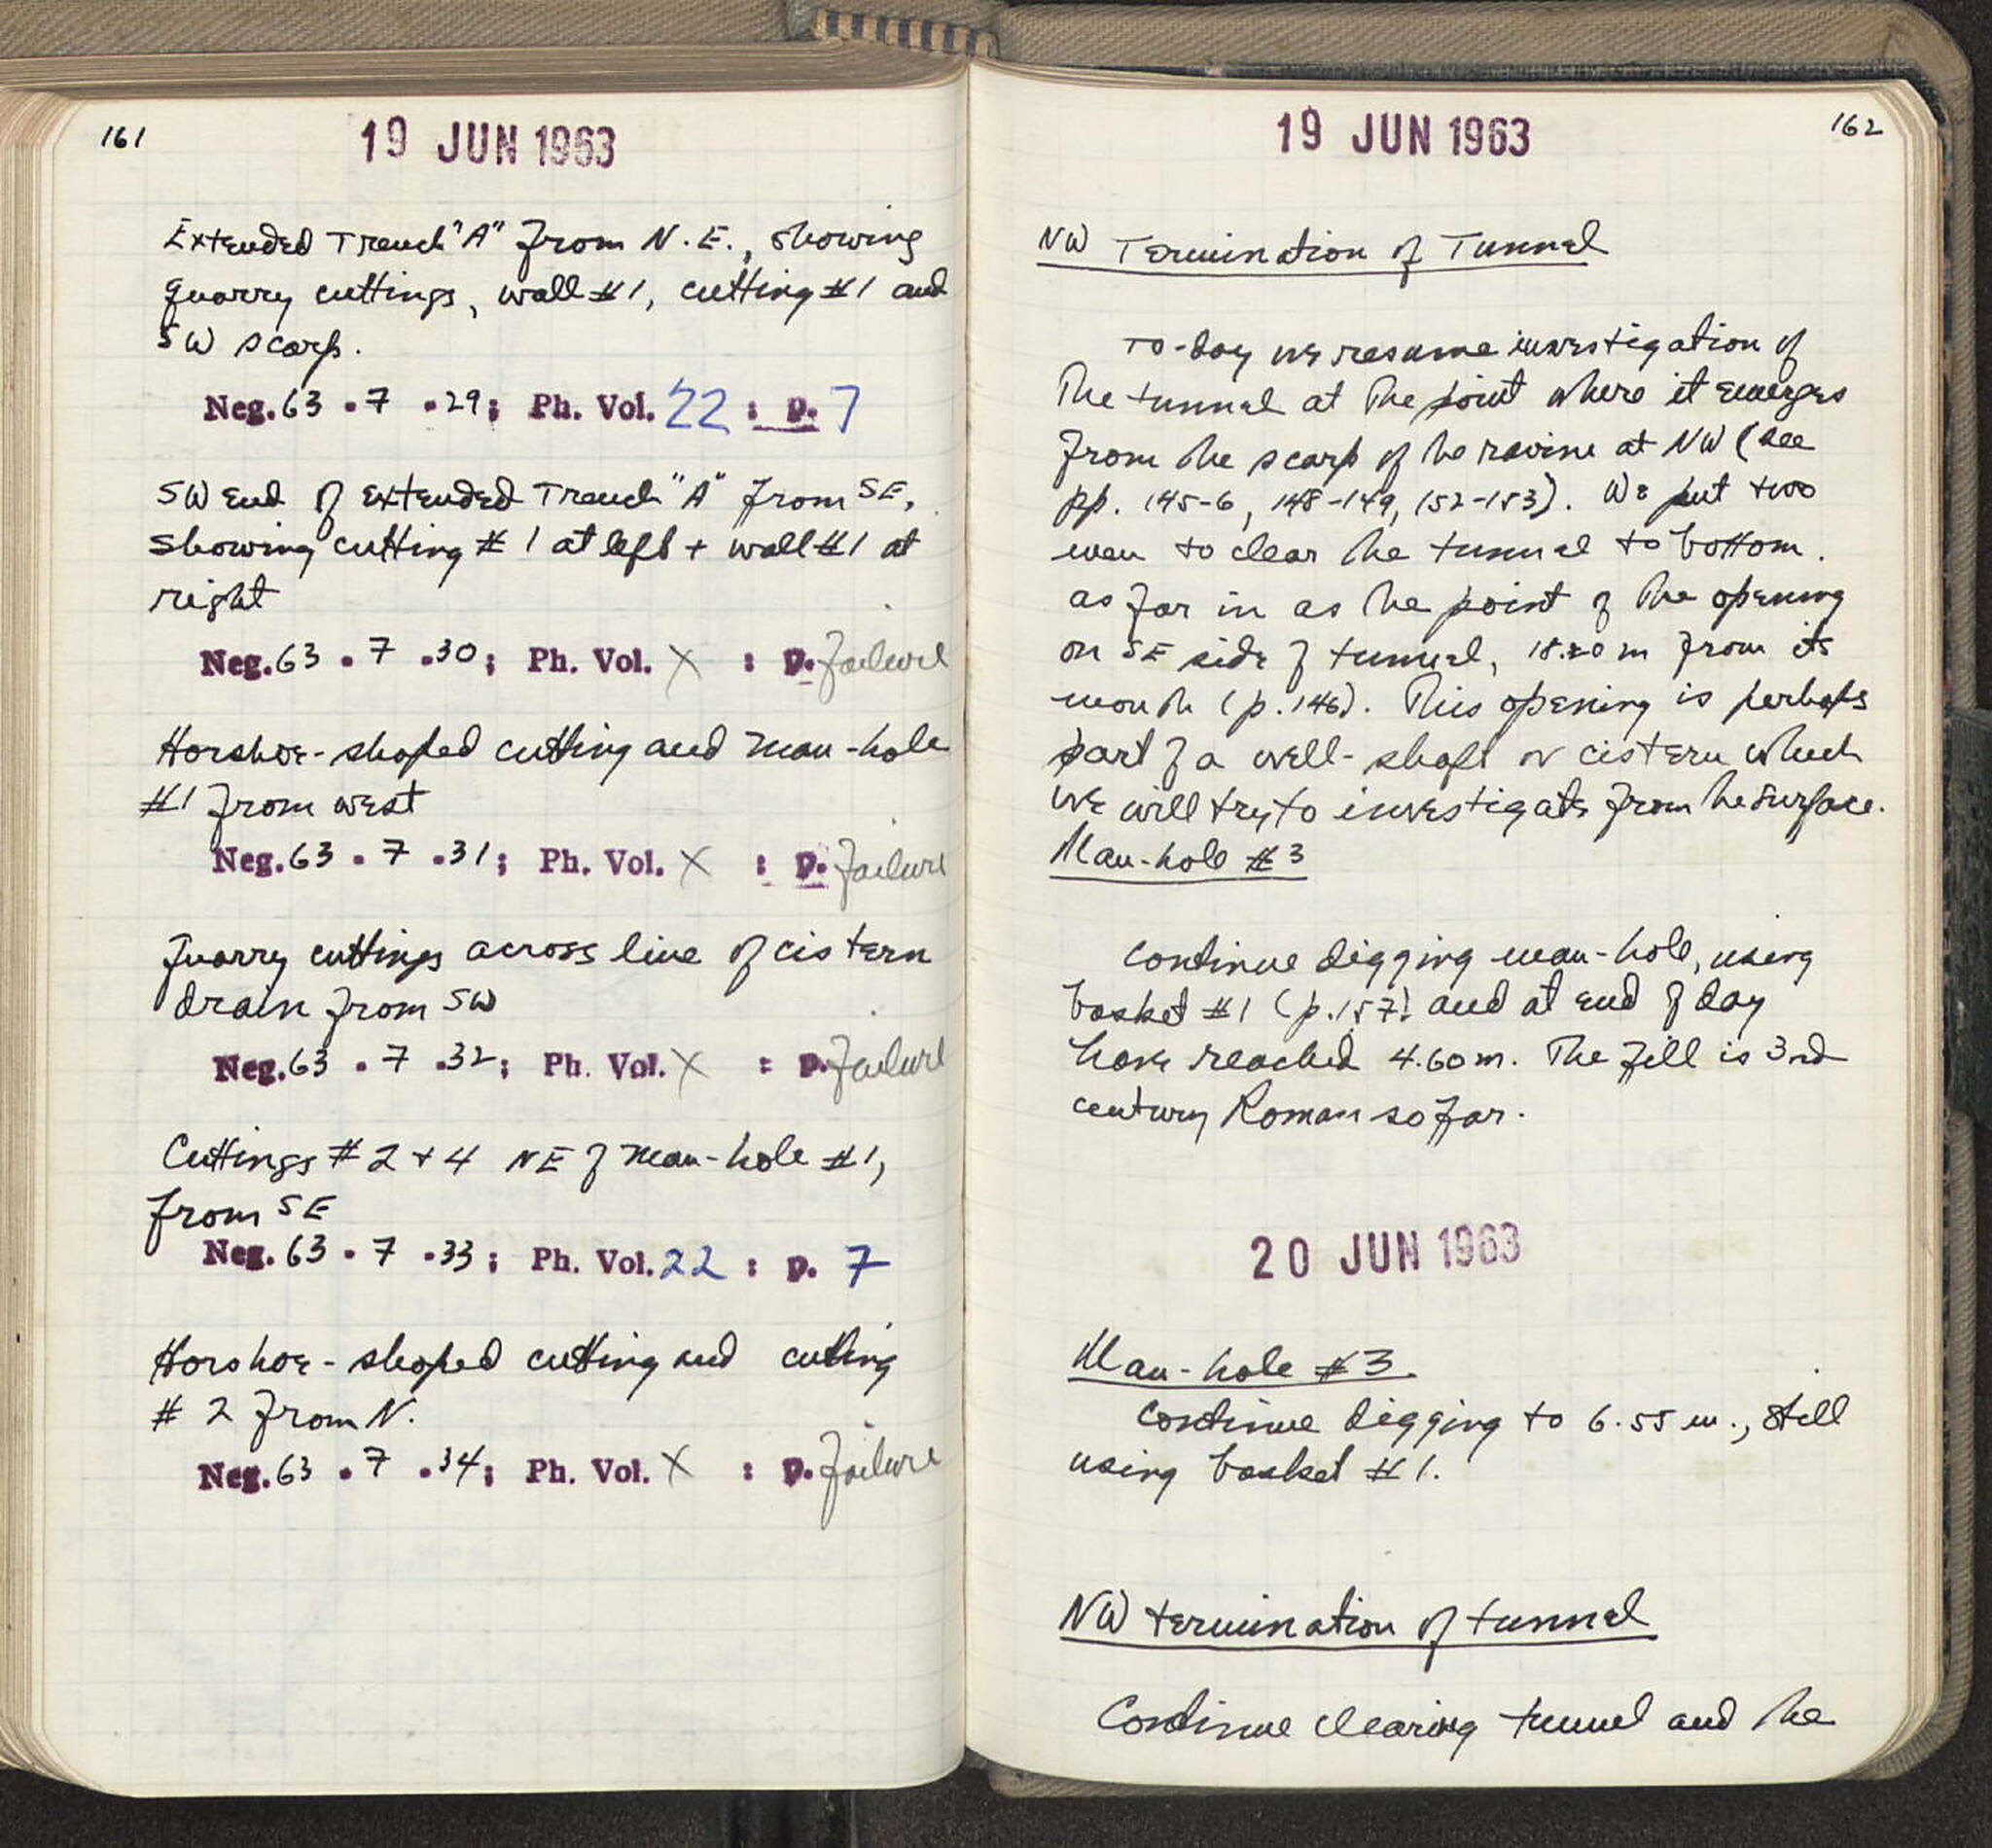 161
19 JUN 1963
Extended Trench "A" from N.E., showing
quarry cuttings, wall #1, cutting #1 and
SW scarp.
Neg. 63 . 7 . 29; Ph. Vol. 22 : p. 7
SW end of extended Trench "A" from SE,
showing cutting # 1 at left + wall #1 at
right
Neg. 63 . 7 . 30; Ph. Vol. X : p. failure
Horshoe-shaped cutting and man-hole
#1 from west
Neg. 63 . 7 . 31; Ph. Vol. X : p. failure
Quarry cuttings across line of cistern
drain from SW
Neg. 63 . 7 . 32; Ph. Vol. X : p. failure
Cuttings # 2 + 4 NE of man-hole #1,
from SE
Neg. 63 . 7 . 33; Ph. Vol. 22 : p. 7
Horshoe-shaped cutting and cutting
# 2 from N.
Neg. 63 . 7 . 34; Ph. Vol. X : p. failure
19 JUN 1963
162
NW Termination of Tunnel
To-day we resume investigation of
the tunnel at the point where it emerges
from the scarp of the ravine at NW (see
pp. 145-6, 148-149, 152-153). We put two
men to clear the tunnel to bottom.
as far in as the point of the opening
on SE side of tunnel, 18. m from its
mouth (p. 146). This opening is perhaps
part of a well-shaft or cistern which
we will try to investigate from the surface.
Man-hole #3
Continue digging man-hole, using
basket #1 (p. 157) and at end of day
have reached 4.60 m. The fill is 3rd
century Roman so far.
20 JUN 1963
Man-hole #3.
Continue digging to 6.55 m., still
using basket #1.
NW termination of tunnel
Continue clearing tunnel and the